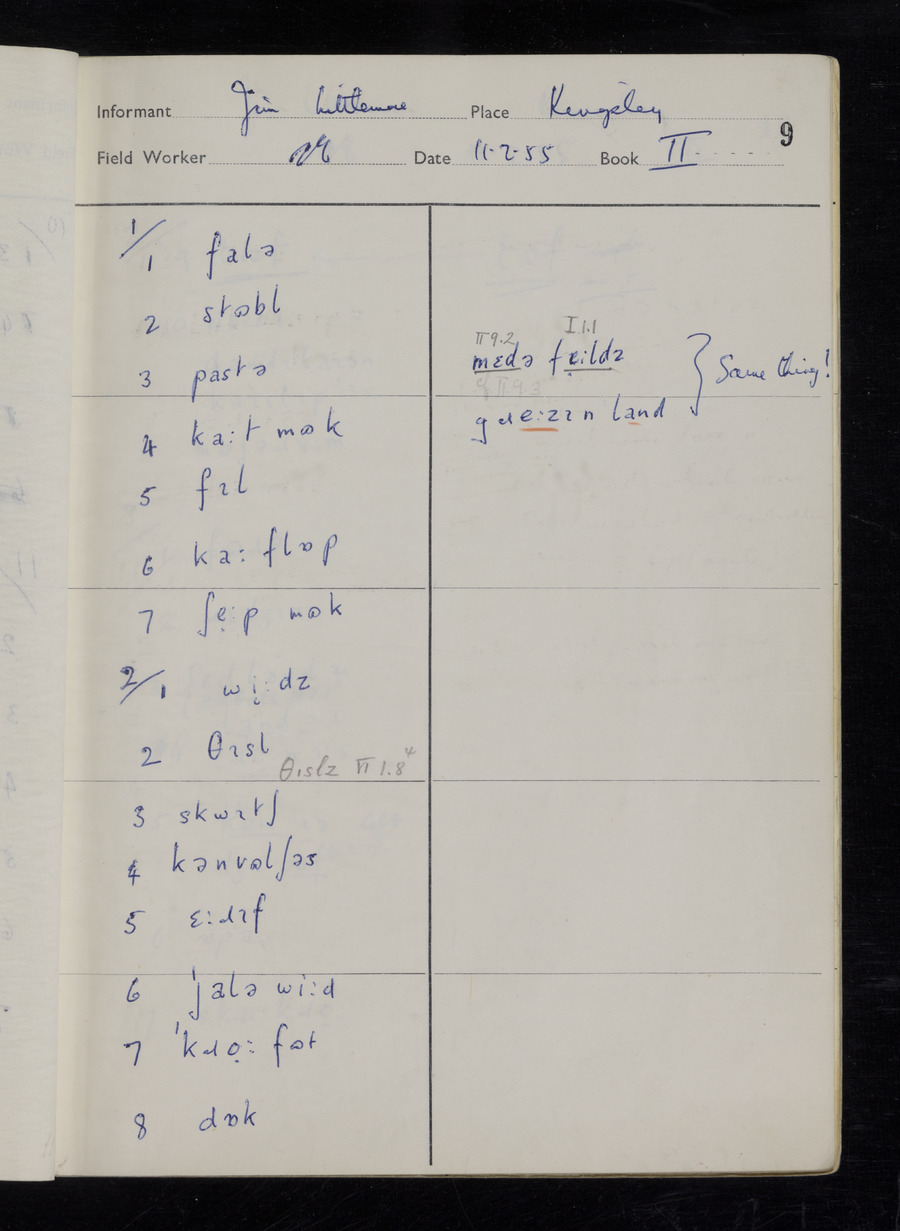 Informant Jim Littlemore Place Kingsley
9
Field Worker Date 11·2·55 Book II
1/1 falə
2 stɒbl
3 pastə
II 9.2 I 1.1
mɛdə fi̞ːldz } Same thing!
q II 9.3
gɹeːzɪn land
4 kaːt mɒk
5 fɪl
6 kaː flɒp
7 ʃi̞ːp mɒk
2/1 wi̞ːdz
2 θɪsl
θɪslz II 1.8⁴
3 skwɪtʃ
4 kənvɒlʃəs
5 ɛːɹɪf
6 ˈjalə wiːd
7 ˈkɹo̞ː fɒt
8 dɒk